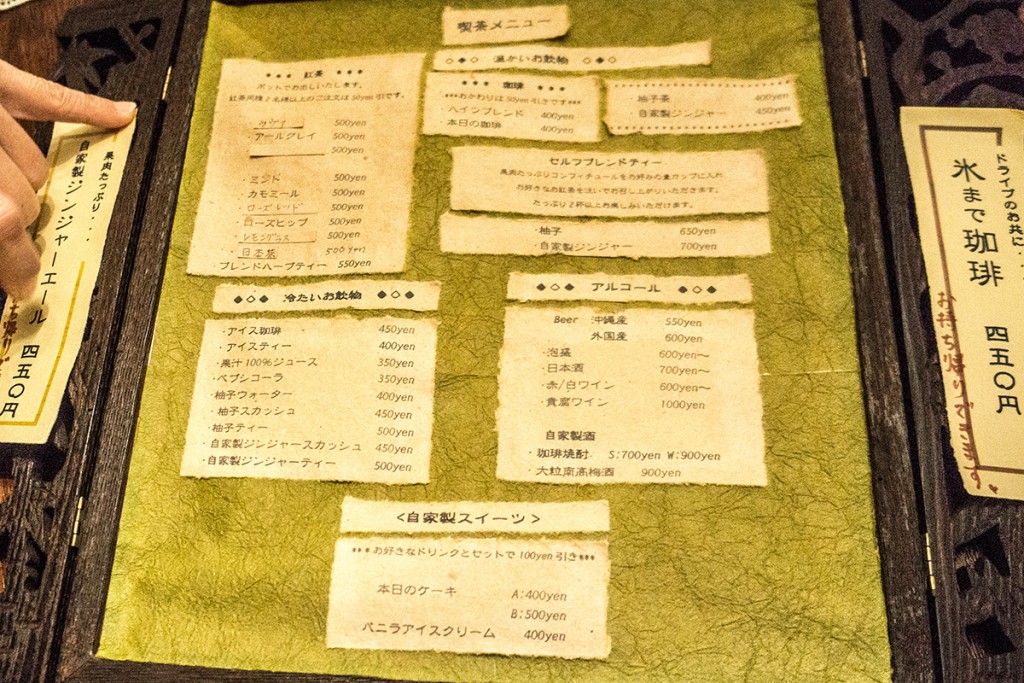 喫茶メニュー
◇◆◇ 温かいお飲物 ◇◆◇
*** 紅茶 ***
ポットでお出しいたします。
紅茶同種2名様以上のご注文は50yen引です。
500yen
アールグレイ 500yen
500yen
・ミント 500yen
・カモミール 500yen
・ローズレッド 500yen
・ローズヒップ 500yen
・レモングラス 500yen
・日本茶 500yen
ブレンドハーブティー 550yen
*** 珈琲 ***
***おかわりは50yen引きです***
・ヘインブレンド 400yen
・本日の珈琲 400yen
・柚子茶 400yen
・自家製ジンジャー 450yen
セルフブレンドティー
果肉たっぷりコンフィチュールをお好みの量カップに入れ
お好きなお紅茶を注いでお召し上がりいただきます。
たっぷり2杯以上お楽しみいただけます。
・柚子 650yen
・自家製ジンジャー 700yen
◆◇◆ 冷たいお飲物 ◆◇◆
・アイス珈琲 450yen
・アイスティー 400yen
・果汁100%ジュース 350yen
・ペプシコーラ 350yen
・柚子ウォーター 400yen
・柚子スカッシュ 450yen
・柚子ティー 500yen
・自家製ジンジャースカッシュ 450yen
・自家製ジンジャーティー 500yen
◆◇◆ アルコール ◆◇◆
Beer 沖縄産 550yen
外国産 600yen
・泡盛 600yen〜
・日本酒 700yen〜
・赤/白ワイン 600yen〜
・貴腐ワイン 1000yen
自家製酒
・珈琲焼酎 S:700yen W:900yen
・大粒南高梅酒 900yen
<自家製スイーツ>
***お好きなドリンクとセットで100yen引き***
本日のケーキ A:400yen
B:500yen
バニラアイスクリーム 400yen
果肉たっぷり...
自家製ジンジャーエール 四五〇円
ドライブのお共に...
氷まで珈琲 四五〇円
お持ち帰りできます。